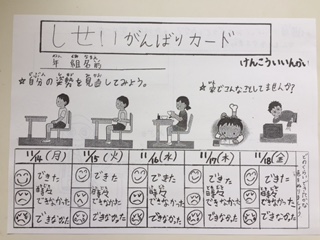 しせいがんばりカード
けんこういいんかい
年 組 名前
☆自分の姿勢を見直してみよう。
☆家でこんなことしてませんか？
11/14(月) 11/15(火) 11/16(水) 11/17(木) 11/18(金)
できた できた できた できた できた
時々 時々 時々 時々 時々
できなかった できなかった できなかった できなかった できなかった
できなかった できなかった できなかった できなかった できなかった